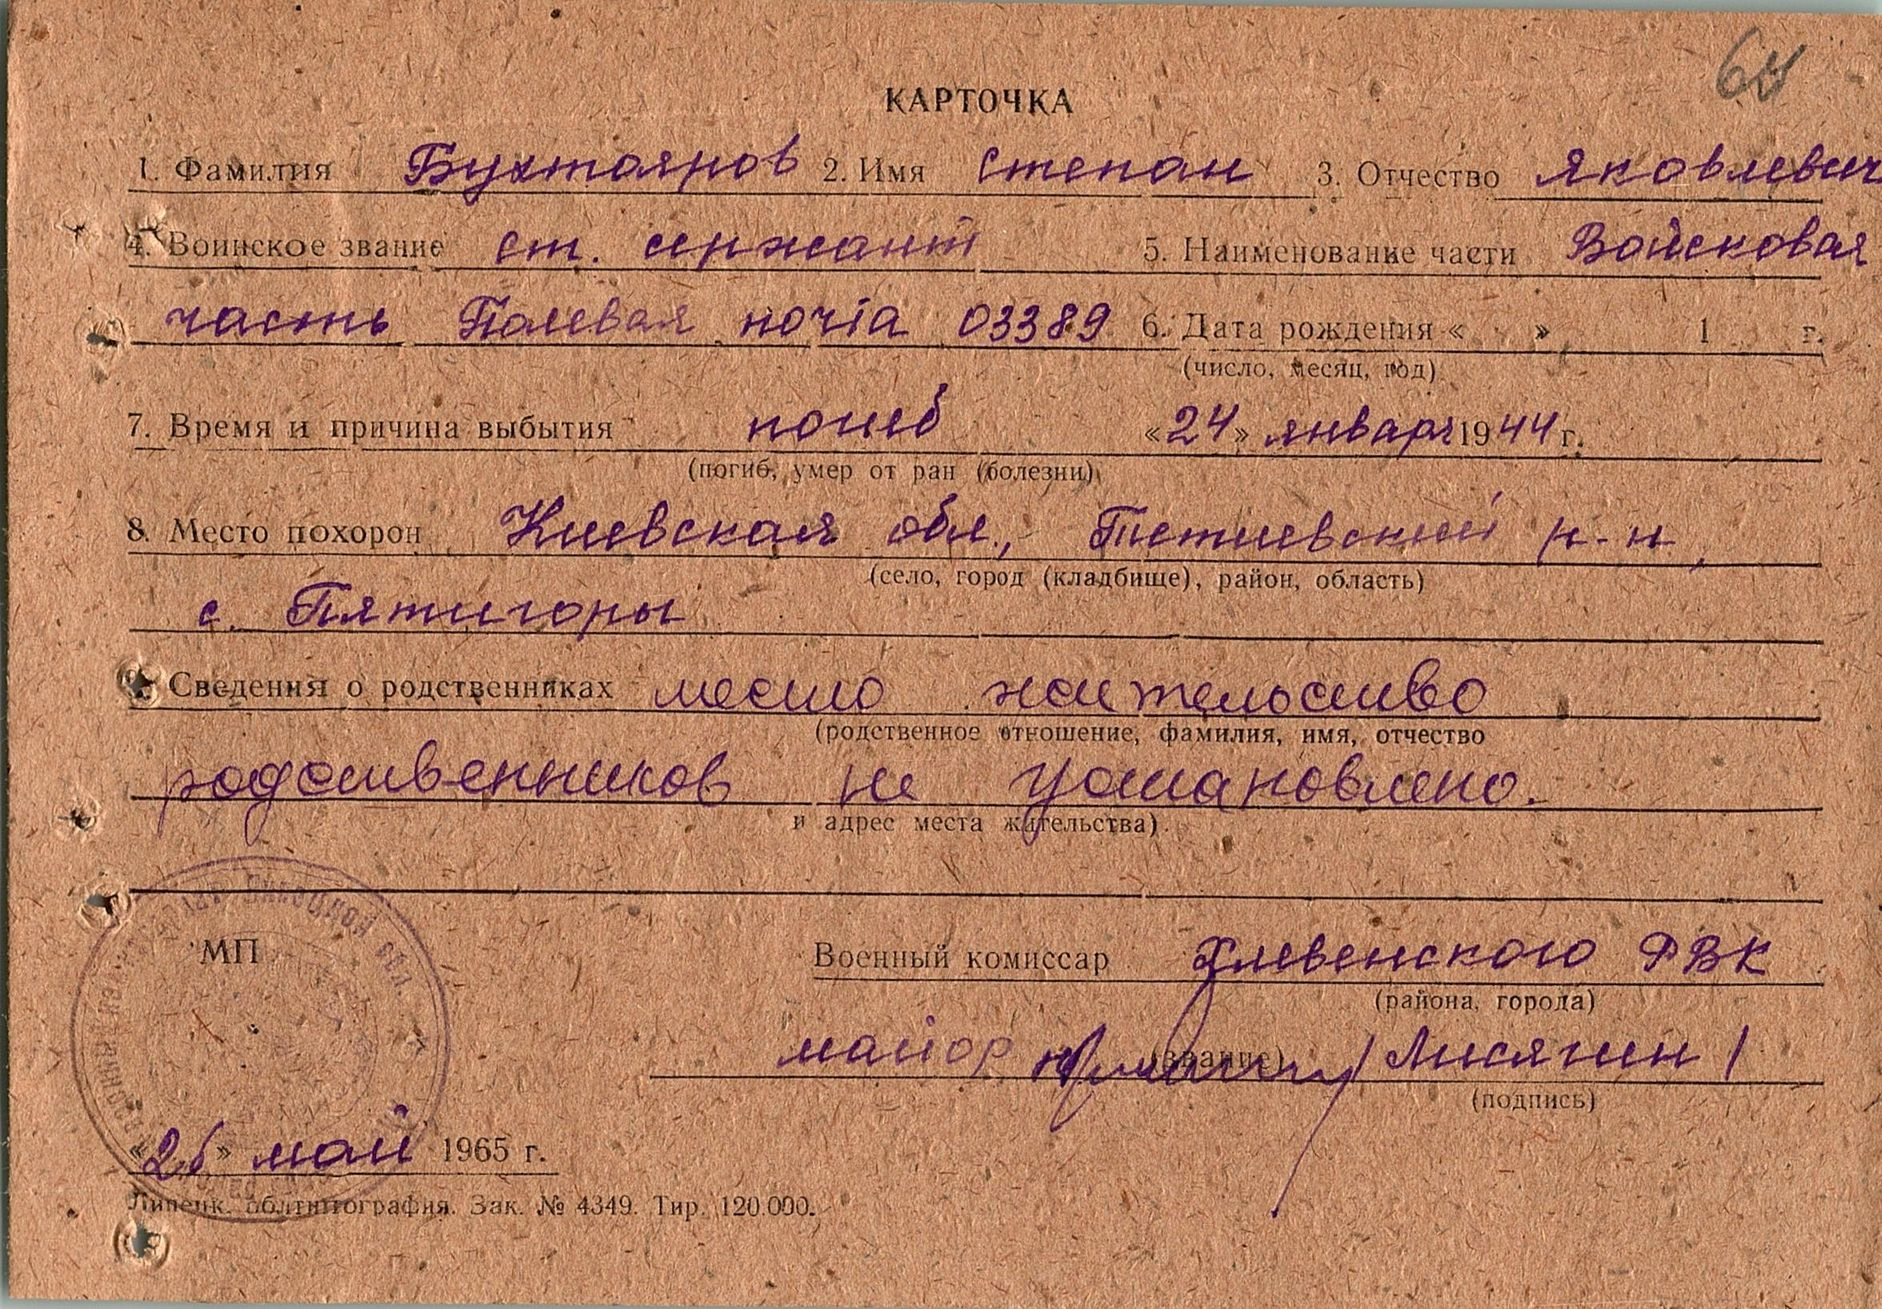 КАРТОЧКА
1. Фамилия Бухтояров 2. Имя Степан 3. Отчество Яковлевич
4. Воинское звание ст. сержант 5. Наименование части Войсковая
часть Полевая почта 03389 6. Дата рождения « » 1 г.
(число, месяц, год)
7. Время и причина выбытия погиб «24» января 1944 г.
(погиб, умер от ран (болезни)
8. Место похорон Киевская обл., Тетиевский р-н,
(село, город (кладбище), район, область)
с. Пятигоры
9. Сведения о родственниках место жительство
(родственное отношение, фамилия, имя, отчество
родственников не установлено.
и адрес места жительства).
МП
Военный комиссар Хлевенского РВК
(района, города)
майор (звание) / Лисягин /
(подпись)
мая 1965 г.
Липецк. облтипография. Зак. № 4349. Тир. 120.000.